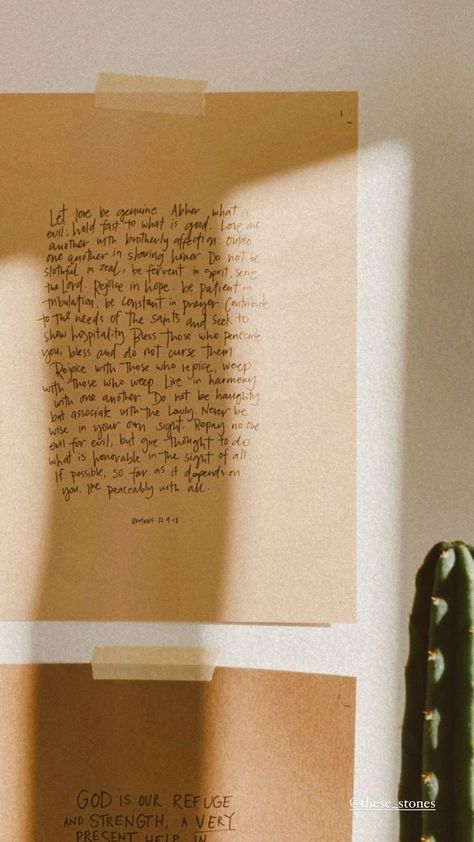 Let love be genuine. Abhor what is
evil; hold fast to what is good. Love one
another with brotherly affection. Outdo
one another in showing honor. Do not be
slothful in zeal, be fervent in spirit, serve
the Lord. Rejoice in hope. be patient in
tribulation, be constant in prayer. Contribute
to the needs of the saints and seek to
show hospitality. Bless those who persecute
you, bless and do not curse them
Rejoice with those who rejoice, weep
with those who weep. Live in harmony
with one another. Do not be haughty
but associate with the lowly. Never be
wise in your own sight. Repay no one
evil for evil, but give thought to do
what is honorable in the sight of all.
If possible, so far as it depends on
you, live peaceably with all.
ROMANS 12:9-18
GOD IS OUR REFUGE
AND STRENGTH, A VERY
PRESENT HELP IN
@these_stones